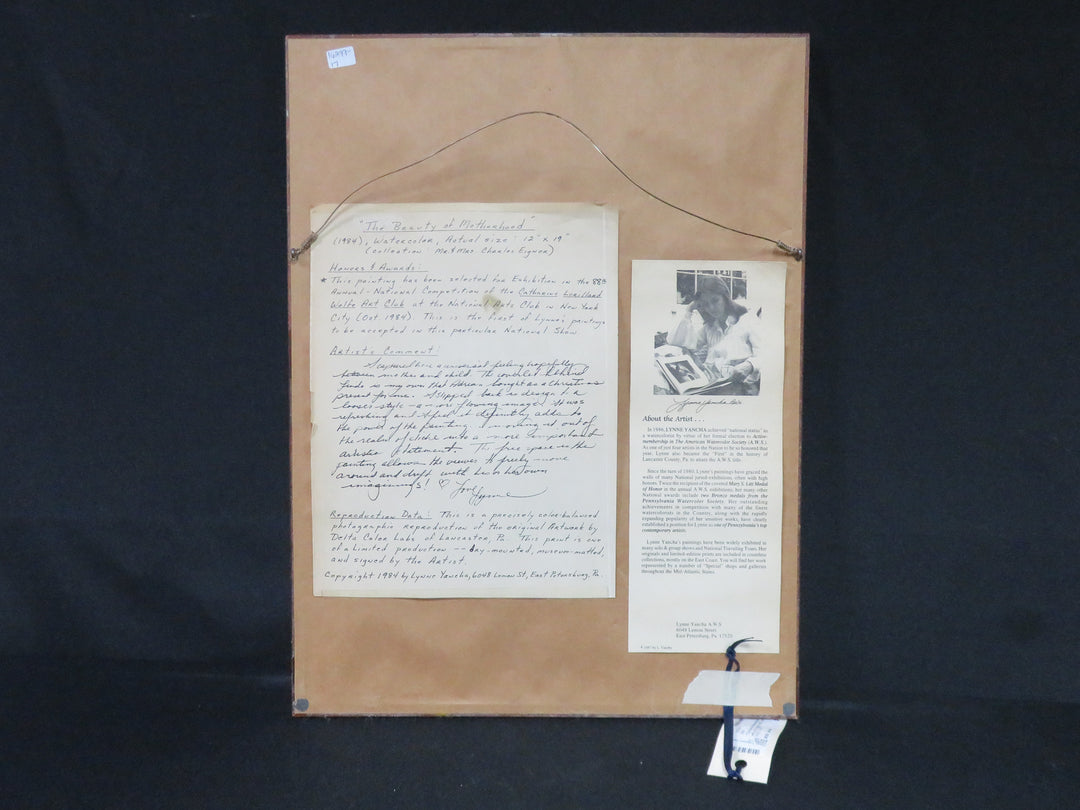 "The Beauty of Motherhood"
(1984), Watercolor, Actual size: 12" x 19"
(collection Mr. & Mrs. Charles Eigner)
Honors & Awards:
* This painting has been selected for Exhibition in the 88th
Annual National Competition of the Catharine Lorillard
Wolfe Art Club at the National Arts Club in New York
City (Oct 1984). This is the first of Lynne's paintings
to be accepted in this particular National Show
Artist's Comment:
I captured here a universal feeling hopefully
between mother and child. The coverlet behind
finds is my own that Adrian bought as a Christmas
present for me. I slipped back to design & a
looser style - a more flowing image. It was
refreshing and I feel it definitely adds to
the power of the painting. I'm moving it out of
the realm of cliché into a more important
artistic statement. The free space in the
painting allows the viewer to freely move
around and drift with his or her own
imaginings! ♡ Love Lynne
Reproduction Data: This is a precisely color-balanced
photographic reproduction of the original Artwork by
Delta Color Labs of Lancaster, Pa. This print is one
of a limited production -- dry-mounted, museum-matted,
and signed by the Artist.
Copyright 1984 by Lynne Yancha, 6048 Lemon St, East Petersburg, Pa.
Lynne Yancha
About the Artist . . .
In 1986, LYNNE YANCHA achieved "national status" as
a watercolorist by virtue of her formal election to Active-
membership in The American Watercolor Society (A.W.S.).
As one of just four artists in the Nation to be so honored that
year, Lynne also became the "First" in the history of
Lancaster County, Pa. to attain the A.W.S. title.
Since the turn of 1980, Lynn's paintings have graced the
walls of many National juried-exhibitions, often with high
honors. Twice the recipient of the coveted Mary S. Litt Medal
of Honor in the annual A.W.S. exhibitions, her many other
National awards include two Bronze medals from the
Pennsylvania Watercolor Society. Her outstanding
achievements in competition with many of the finest
watercolorists in the Country, along with the rapidly
expanding popularity of her sensitive works, have clearly
established a position for Lynne as one of Pennsylvania's top
contemporary artists.
Lynne Yancha's paintings have been widely exhibited in
many solo & group shows and National Traveling Tours. Her
originals and limited-edition prints are included in countless
collections, mostly on the East Coast. You will find her work
represented by a number of "Special" shops and galleries
throughout the Mid-Atlantic States.
Lynne Yancha A.W.S.
6048 Lemon Street
East Petersburg, Pa. 17520